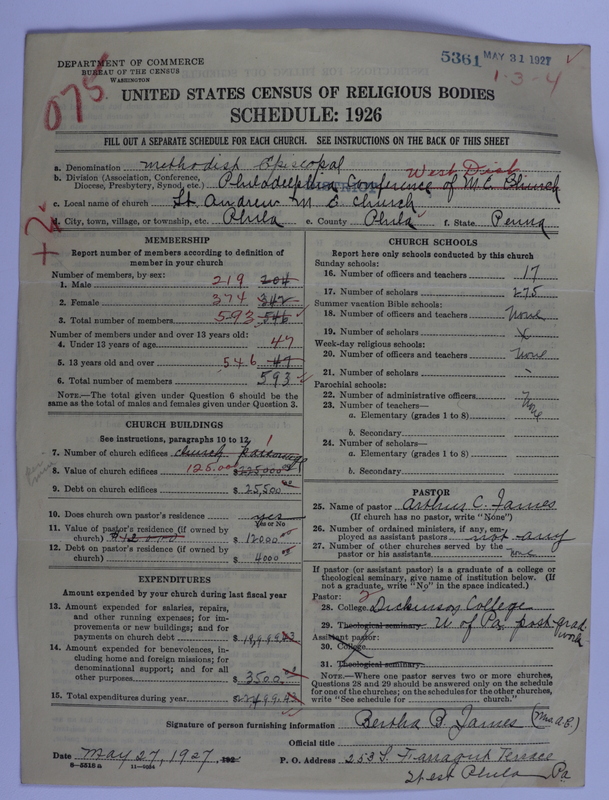 DEPARTMENT OF COMMERCE
BUREAU OF THE CENSUS
WASHINGTON
5361 MAY 31 1927
1-3-4
075
UNITED STATES CENSUS OF RELIGIOUS BODIES
SCHEDULE: 1926
FILL OUT A SEPARATE SCHEDULE FOR EACH CHURCH. SEE INSTRUCTIONS ON THE BACK OF THIS SHEET
a. Denomination Methodist Episcopal
West Dist
b. Division (Association, Conference, Diocese, Presbytery, Synod, etc.) Philadelphia Conference of M.E. Church
c. Local name of church St. Andrew M E church
d. City, town, village, or township, etc. Phila e. County Phila f. State Penna
+2
MEMBERSHIP
Report number of members according to definition of member in your church
Number of members, by sex:
1. Male 219 204
2. Female 374 342
3. Total number of members 593 546
Number of members under and over 13 years old:
4. Under 13 years of age 47
5. 13 years old and over 546 47
6. Total number of members 593
NOTE.—The total given under Question 6 should be the same as the total of males and females given under Question 3.
CHURCH BUILDINGS
See instructions, paragraphs 10 to 12
7. Number of church edifices church parsonage 1
8. Value of church edifices 125.000 $225,000
9. Debt on church edifices $25,500
10. Does church own pastor's residence? yes
Yes or No
11. Value of pastor's residence (if owned by church) $12000 $12000
12. Debt on pastor's residence (if owned by church) $4000
EXPENDITURES
Amount expended by your church during last fiscal year
13. Amount expended for salaries, repairs, and other running expenses; for improvements or new buildings; and for payments on church debt $
14. Amount expended for benevolences, including home and foreign missions; for denominational support; and for all other purposes $3500
15. Total expenditures during year $
CHURCH SCHOOLS
Report here only schools conducted by this church
Sunday schools:
16. Number of officers and teachers 17
17. Number of scholars 275
Summer vacation Bible schools:
18. Number of officers and teachers None
19. Number of scholars X
Week-day religious schools:
20. Number of officers and teachers None
21. Number of scholars -
Parochial schools:
22. Number of administrative officers None
23. Number of teachers—
a. Elementary (grades 1 to 8)
b. Secondary
24. Number of scholars—
a. Elementary (grades 1 to 8)
b. Secondary
PASTOR
25. Name of pastor Arthur C. James
(If church has no pastor, write "None")
26. Number of ordained ministers, if any, employed as assistant pastors not any
27. Number of other churches served by the pastor or his assistants None
If pastor (or assistant pastor) is a graduate of a college or theological seminary, give name of institution below. (If not a graduate, write "No" in the space indicated.)
Pastor: 2
28. College Dickinson College
29. Theological seminary U of Pa. post-grad work
Assistant pastor:
30. College
31. Theological seminary
NOTE.—Where one pastor serves two or more churches, Questions 28 and 29 should be answered only on the schedule for one of the churches; on the schedules for the other churches, write "See schedule for church."
Signature of person furnishing information Bertha B. James (Mrs. A.C.)
Official title
Date May 27, 1927, 192
P. O. Address 253 S. Farragut Terrace
West Phila Pa.
8—5518 a 11—9034